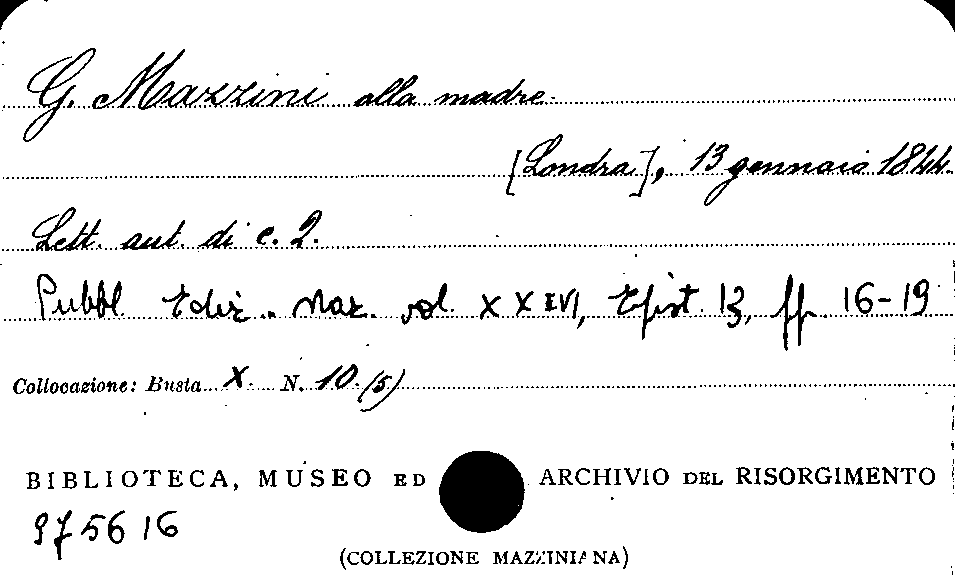 G. Mazzini alla madre.
[Londra], 13 gennaio 1844.
Lett. aut. di c. 2.
Pubbl Ediz. Naz. vol. XXEVI, Epist. 13, pp. 16-19
Collocazione: Busta X. N. 10 (5)
BIBLIOTECA, MUSEO ED ARCHIVIO DEL RISORGIMENTO
975616
(COLLEZIONE MAZZINIANA)